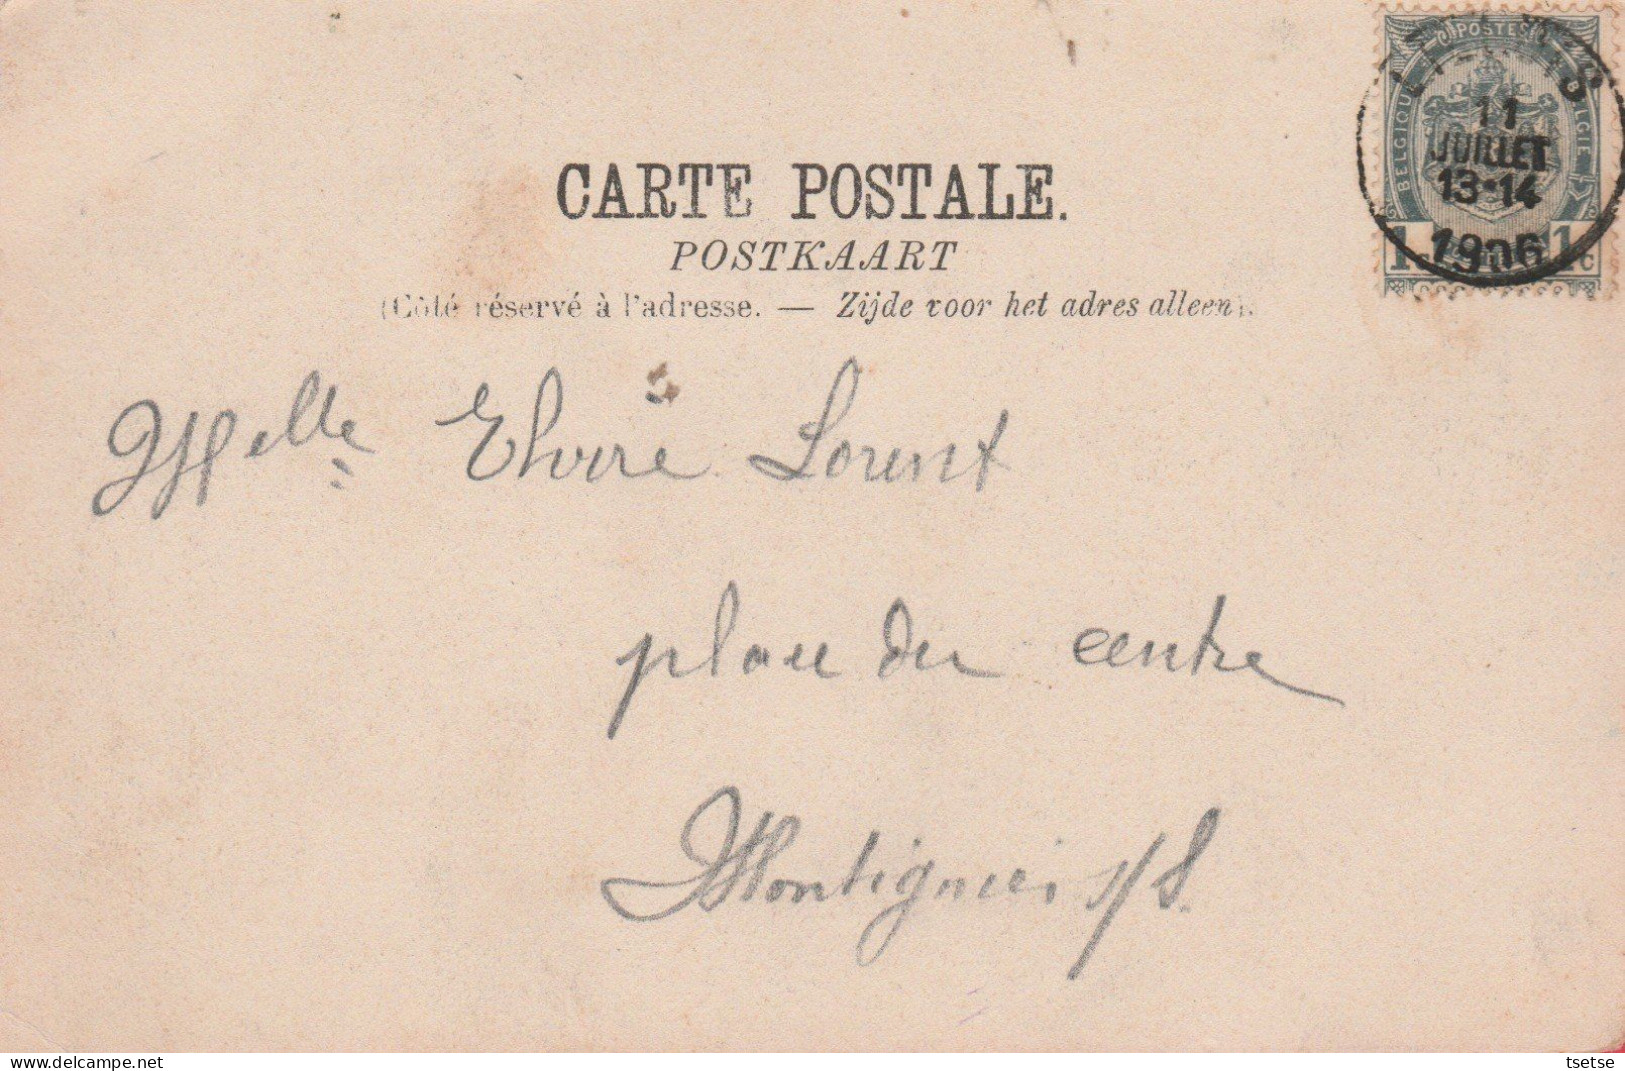 POSTES
BELGIQUE BELGIË
11
JUILLET
13-14
1906
1c 1c
CARTE POSTALE.
POSTKAART
(Côté réservé à l'adresse. — Zijde voor het adres alleen).
Melle Elvire Lorent
place du centre
Montignies s/S.
delcampe.net
tsetse